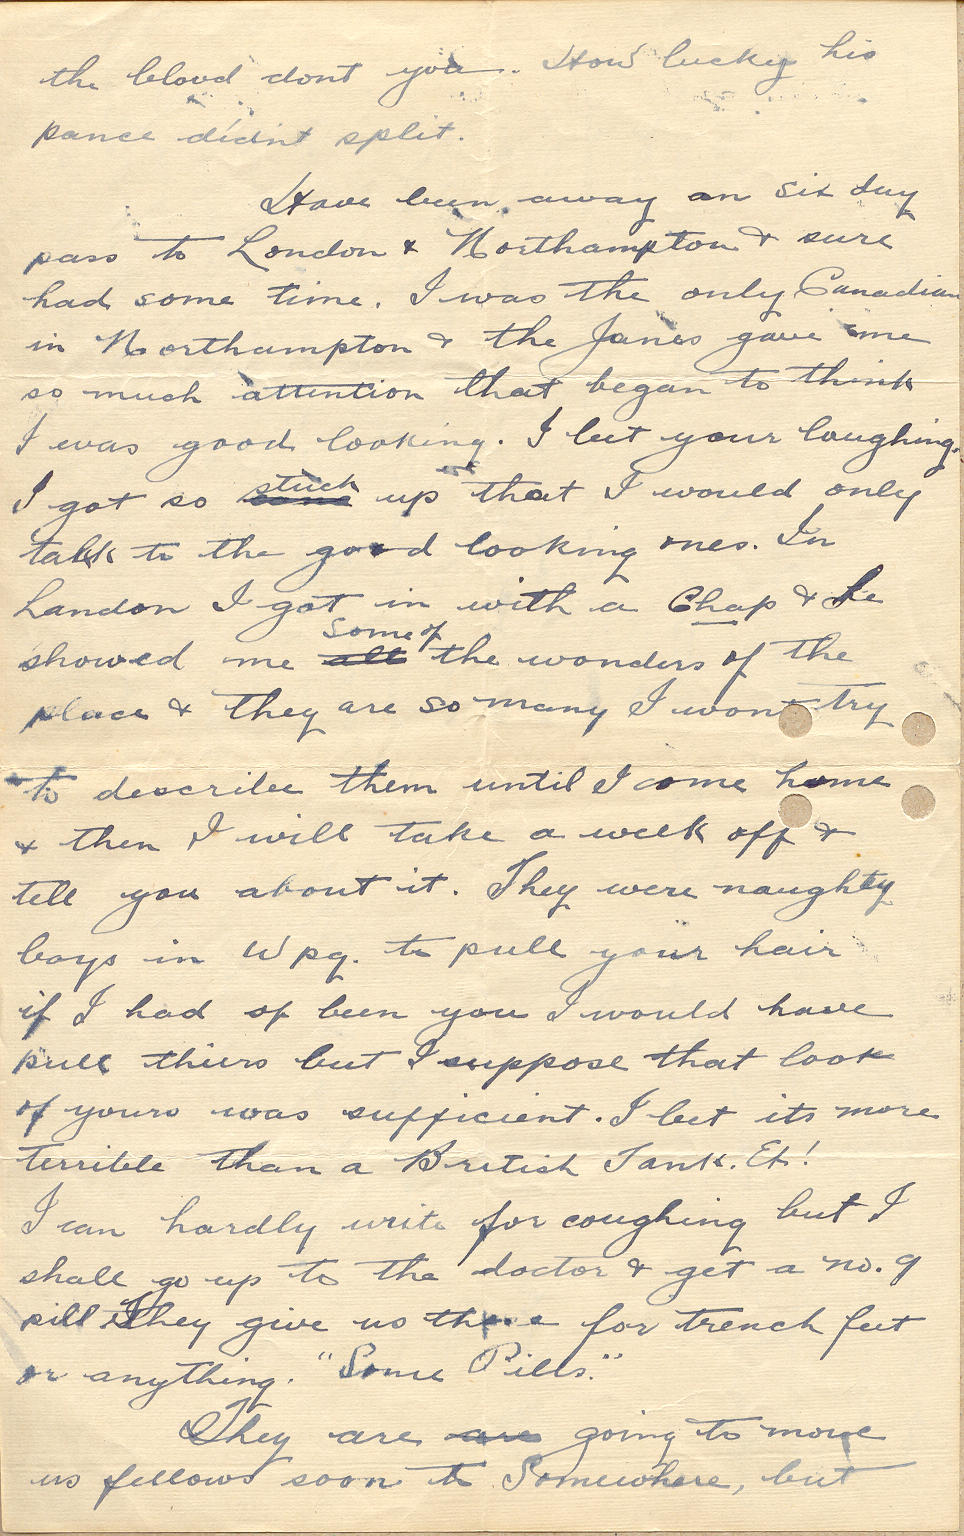 the blood dont you. How lucky his
pance didnt split.
Have been away on six day
pass to London & Northampton & sure
had some time. I was the only Canadian
in Northampton & the Janes gave me
so much attention that began to think
I was good looking. I bet your laughing.
I got so stuck up that I would only
talk to the good looking ones. In
London I got in with a Chap & he
showed me all some of the wonders of the
place & they are so many I wont try
to describe them until I come home
& then I will take a week off &
tell you about it. They were naughty
boys in Wpg. to pull your hair
if I had of been you I would have
pull thiers but I suppose that look
of yours was sufficient. I bet its more
terrible than a British Tank. Eh!
I can hardly write for coughing but I
shall go up to the doctor & get a no. 9
pill They give us these for trench feet
or anything. "Some Pills."
They are are going to move
us fellows soon to Somewhere, but